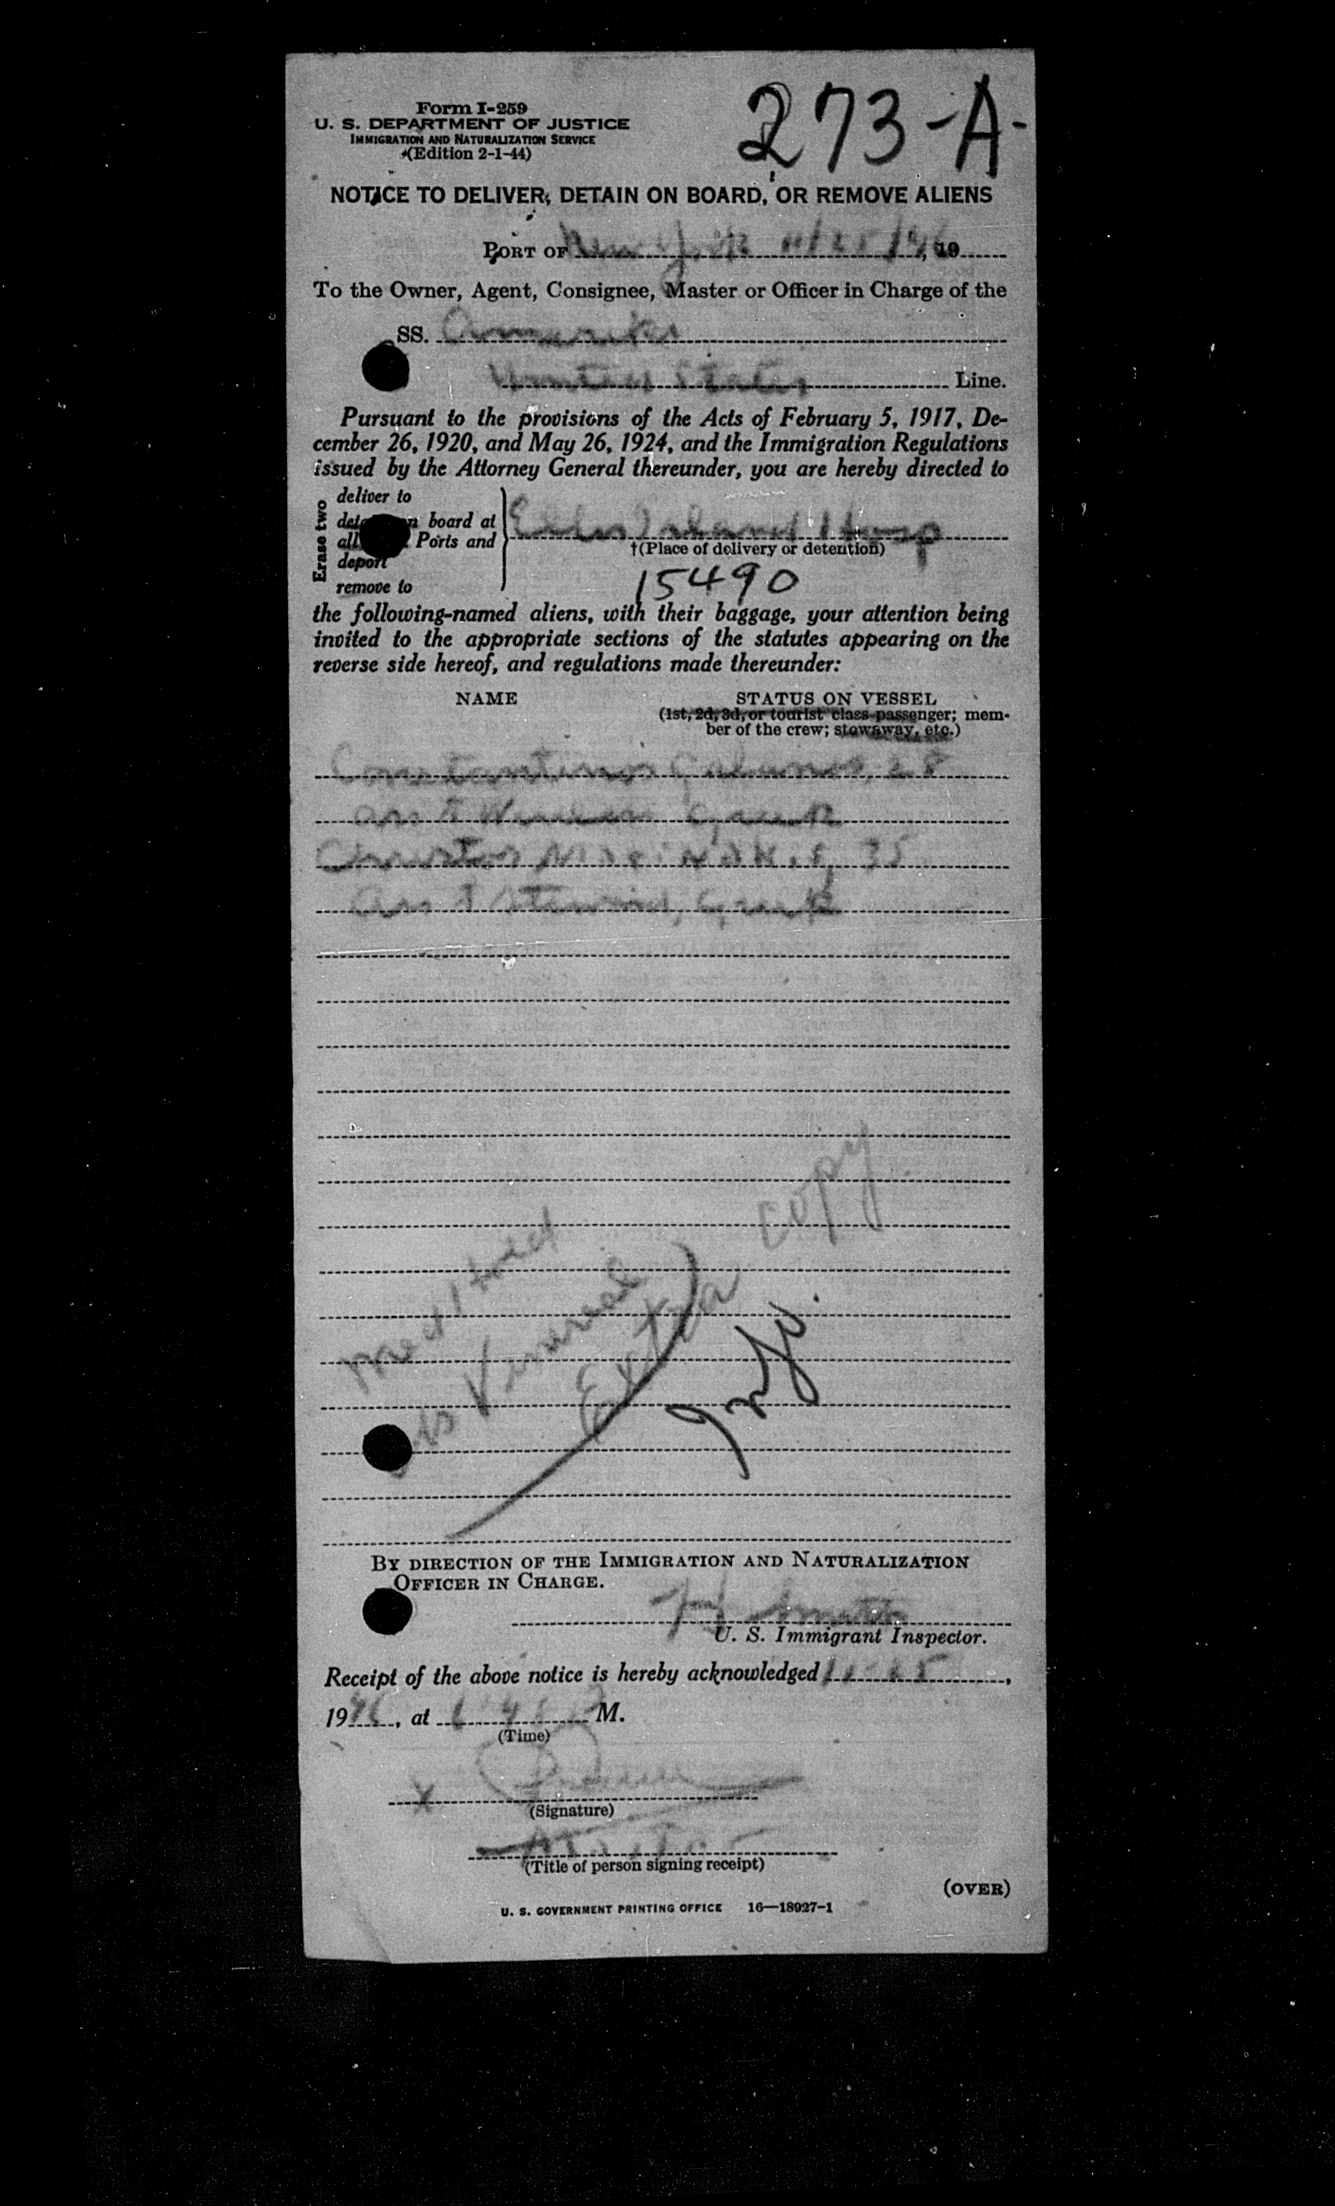 Form I-259
273-A-
U. S. DEPARTMENT OF JUSTICE
IMMIGRATION AND NATURALIZATION SERVICE
(Edition 2-1-44)
NOTICE TO DELIVER, DETAIN ON BOARD, OR REMOVE ALIENS
PORT OF New York 11/25/46, 19
To the Owner, Agent, Consignee, Master or Officer in Charge of the
SS.
United States Line.
Pursuant to the provisions of the Acts of February 5, 1917, De-
cember 26, 1920, and May 26, 1924, and the Immigration Regulations
issued by the Attorney General thereunder, you are hereby directed to
Erase two
deliver to
board at
Ports and
deport
remove to
Ellis Island Hosp
†(Place of delivery or detention)
15490
the following-named aliens, with their baggage, your attention being
invited to the appropriate sections of the statutes appearing on the
reverse side hereof, and regulations made thereunder:
NAME STATUS ON VESSEL
(1st, 2d, 3d, or tourist class passenger; mem-
ber of the crew; stowaway, etc.)
Constantinos 28
Ass't Greek
Christos 35
Ass't Steward, Greek
Med Hold
Venereal
Extra copy
BY DIRECTION OF THE IMMIGRATION AND NATURALIZATION
OFFICER IN CHARGE.
Smith
U. S. Immigrant Inspector.
Receipt of the above notice is hereby acknowledged 11-25,
1946, at M.
(Time)
X
(Signature)
(Title of person signing receipt)
(OVER)
U. S. GOVERNMENT PRINTING OFFICE 16—18927-1